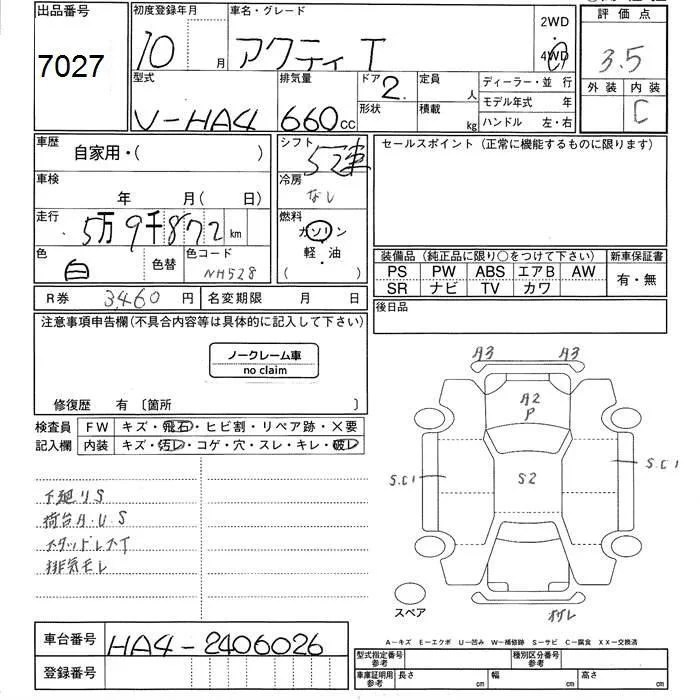 出品番号
7027
初度登録年月
10 月
車名・グレード
アクティ T
2WD
4WD
評価点
3.5
外装 内装
C
型式
V-HA4
排気量
660cc
ドア
2
形状
定員
人
積載
kg
ディーラー・並行
モデル年式 年
ハンドル 左・右
車歴
自家用・( )
車検
年 月( 日)
走行
5万9千872km
色
白
色替
色コード
NH528
シフト
5速
冷房
なし
燃料
ガソリン
軽・油
( )
セールスポイント(正常に機能するものに限ります)
装備品(純正品に限り○をつけて下さい)
PS PW ABS エアB AW
SR ナビ TV カワ
新車保証書
有・無
R券 3,460 円
名変期限 月 日
後日品
注意事項申告欄(不具合内容等は具体的に記入して下さい)
ノークレーム車
no claim
修復歴 有〔箇所 〕
検査員
記入欄
FW キズ・飛石・ヒビ割・リペア跡・×要
内装 キズ・汚レ・コゲ・穴・スレ・キレ・破レ
下廻りS
荷台A.U.S
スタッドレスT
排気モレ
A3 A3
A2
P
S.C1
S2
S.C1
スペア
A-キズ E-エクボ U-凹み W-補修跡 S-サビ C-腐食 XX-交換済
車台番号
HA4-2406026
登録番号
型式指定番号
参考
種別区分番号
参考
車庫証明用
参考
長さ cm
幅 cm
高さ cm